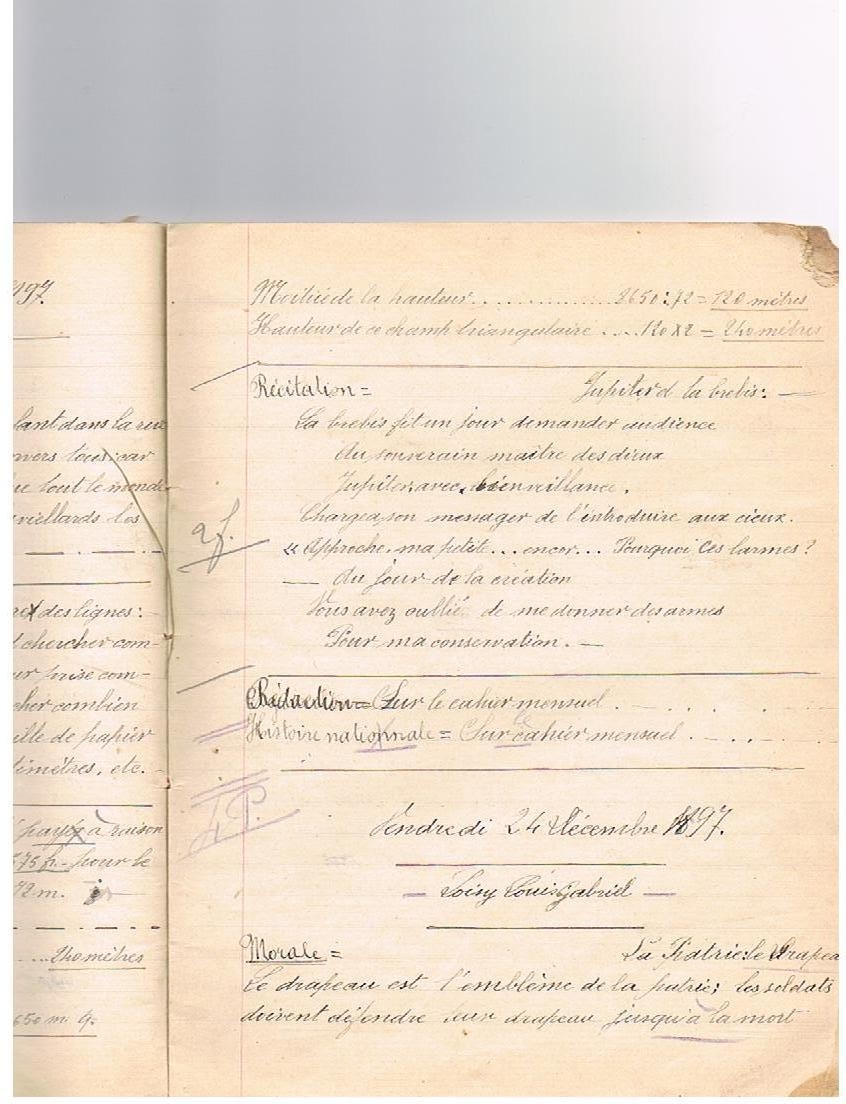 197.
lant dans la rue
nvers tous, car
ue tout le monde
vieillards les
des lignes :
chercher com-
ur prise com-
cher combien
ille de papier
timètres, etc. -
payé à raison
75 fr. pour le
72 m.
... 240 mètres
650 m. q.
Moitié de la hauteur .............. 8650 : 72 = 120 mètres
Hauteur de ce champ triangulaire .... 120 x 2 = 240 mètres
Récitation = Jupiter d la brebis : —
La brebis fit un jour demander audience
Au souverain maître des dieux
Jupiter, avec bienveillance,
Chargea, son messager de l'introduire aux cieux.
« Approche, ma petite ... encor... Pourquoi ces larmes ?
— du jour de la création
Vous avez oublié de me donner des armes
Pour ma conservation. —
2 f.
Rédaction = Sur le cahier mensuel .
Histoire nationale = Sur cahier mensuel .
4 P.
Vendredi 24 Décembre 1897.
— Loisy Louis Gabriel —
Morale = La Patrie : le Drapea
Le drapeau est l'emblème de la patrie ; les soldats
doivent défendre leur drapeau jusqu'à la mort